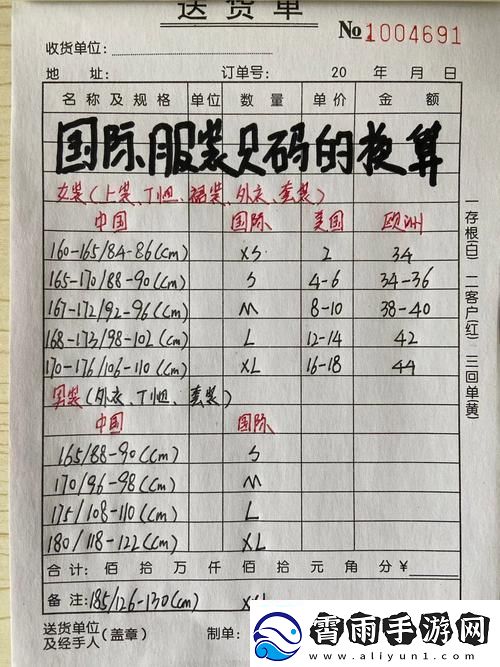 送货单
№1004691
收货单位:
地 址: 订单号: 20 年 月 日
名称及规格 单位 数量 单价 金额
国际服装尺码的换算
女装(上装、T恤、裙装、外衣、套装)
中国 国际 美国 欧洲
160-165/84-86(cm) XS 2 34
165-170/88-90(cm) S 4-6 34-36
167-172/92-96(cm) M 8-10 38-40
168-173/98-102(cm) L 12-14 42
170-176/106-110(cm) XL 16-18 44
男装(外衣、T恤、套装)
中国 国际
165/88-90(cm) S
170/96-98(cm) M
175/108-110(cm) L
180/118-122(cm) XL
合计: 佰 拾 万 仟 佰 拾 元 角 分￥
备注:185/126-130(cm)
送货单位
及经手人(盖章) 制单:
一存根(白) 二客户(红) 三回单(黄)
霄雨手游网
www.aliyun1.com